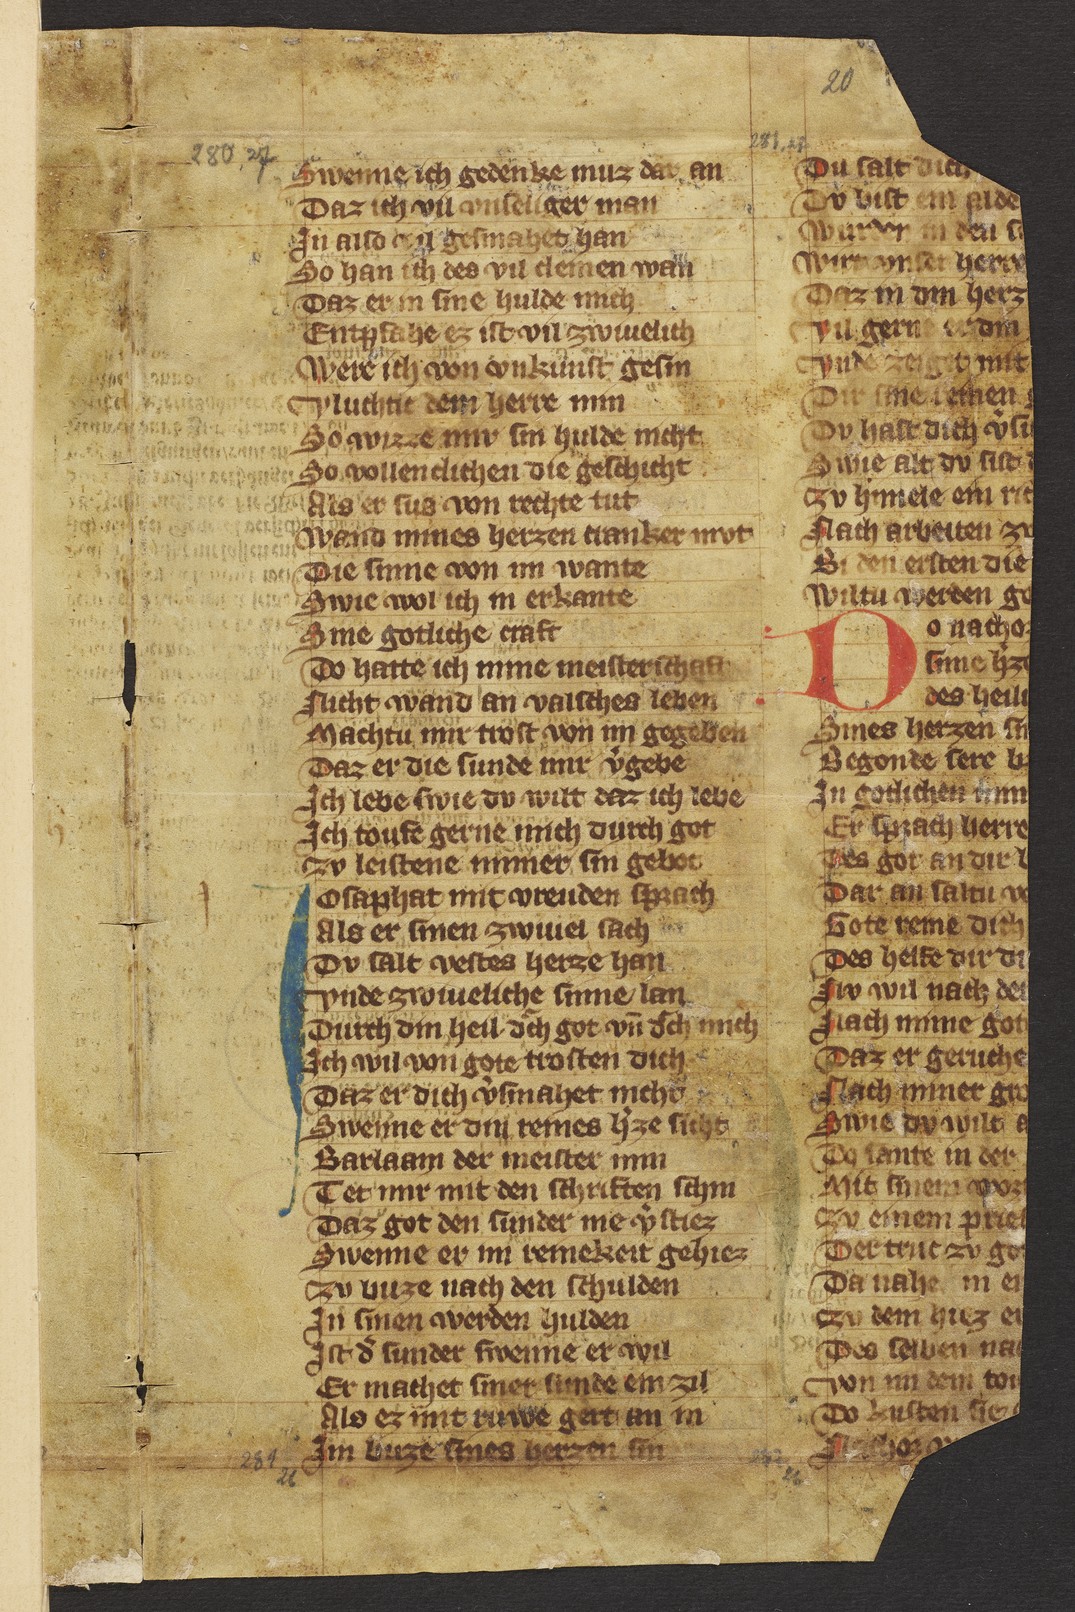 20
280,27
281,27
Swenne ich gedenke muz dar an
Daz ich vil vnseliger man
In also vil gesmahet han
So han ich des vil cleinen wan
Daz er in sine hulde mich
Entpfahe ez ist vil zwiuelich
Were ich von vnkunst gesin
Vluchtic dem herre min
So wizze mir sin hulde nicht
So vollenclichen die geschicht
Als er sus von rechte tut
Wand mines herzen cranker mvt
Die sinne von im wante
Swie wol ich in erkante
Sine gotliche craft
Do hatte ich mine meisterschaft
Nicht wand an valsches leben
Machtu mir trost von im gegeben
Daz er die sunde mir v͛gebe
Ich lebe swie dv wilt daz ich lebe
Ich toufe gerne mich durch got
Zv leistene immer sin gebot
Josaphat mit vreuden sprach
Als er sinen zwiuel sach
Dv salt vestes herze han
Vnde zwiueliche sinne lan
Durch din heil dͨh got vn̄ dͨh mich
Ich wil von gote trosten dich
Daz er dich v͛smahet nicht
Swenne er din reines h͛ze sicht
Barlaam der meister min
Tet mir mit den schriften schin
Daz got den sunder nie v͛stiez
Swenne er im reinekeit gehiez
Zv buze nach den schulden
In sinen werden hulden
Ist d͛ sunder swenne er wil
Er machet siner sunde ein zil
Als ez mit ruwe gert an in
Im buze sines herzen sin
281
26
Du salt dich
Dv bist ein alde
Wurden in den
Wirt vnser herre
Daz in din herz
Vil gerne er din
Vnde zeiget mit
Dir sine reinen
Dv hast dich v͛su
Swie alt dv sist
Zv himele ein rit
Nach arbeiten zv
Bi den ersten die
Wiltu werden ge
Do nachor
sine h͛ze
des heili
Sines herzen sin
Begonde sere b
In gotlichen min
Er sprach herre
Des got an dir
Dar an saltu v
Gote reine dich
Des helfe dir di
Jw wil nach de
Nach mime got
Daz er geruche
Nach miner gro
Swie dv wilt a
Do sante in der
Mit sinem wor
Zv einem pries
Der truc zv go
Da nahe in ei
Zv dem hiez e
Des selben na
Von im dem tou
Do kusten sie
Nachor
282
26